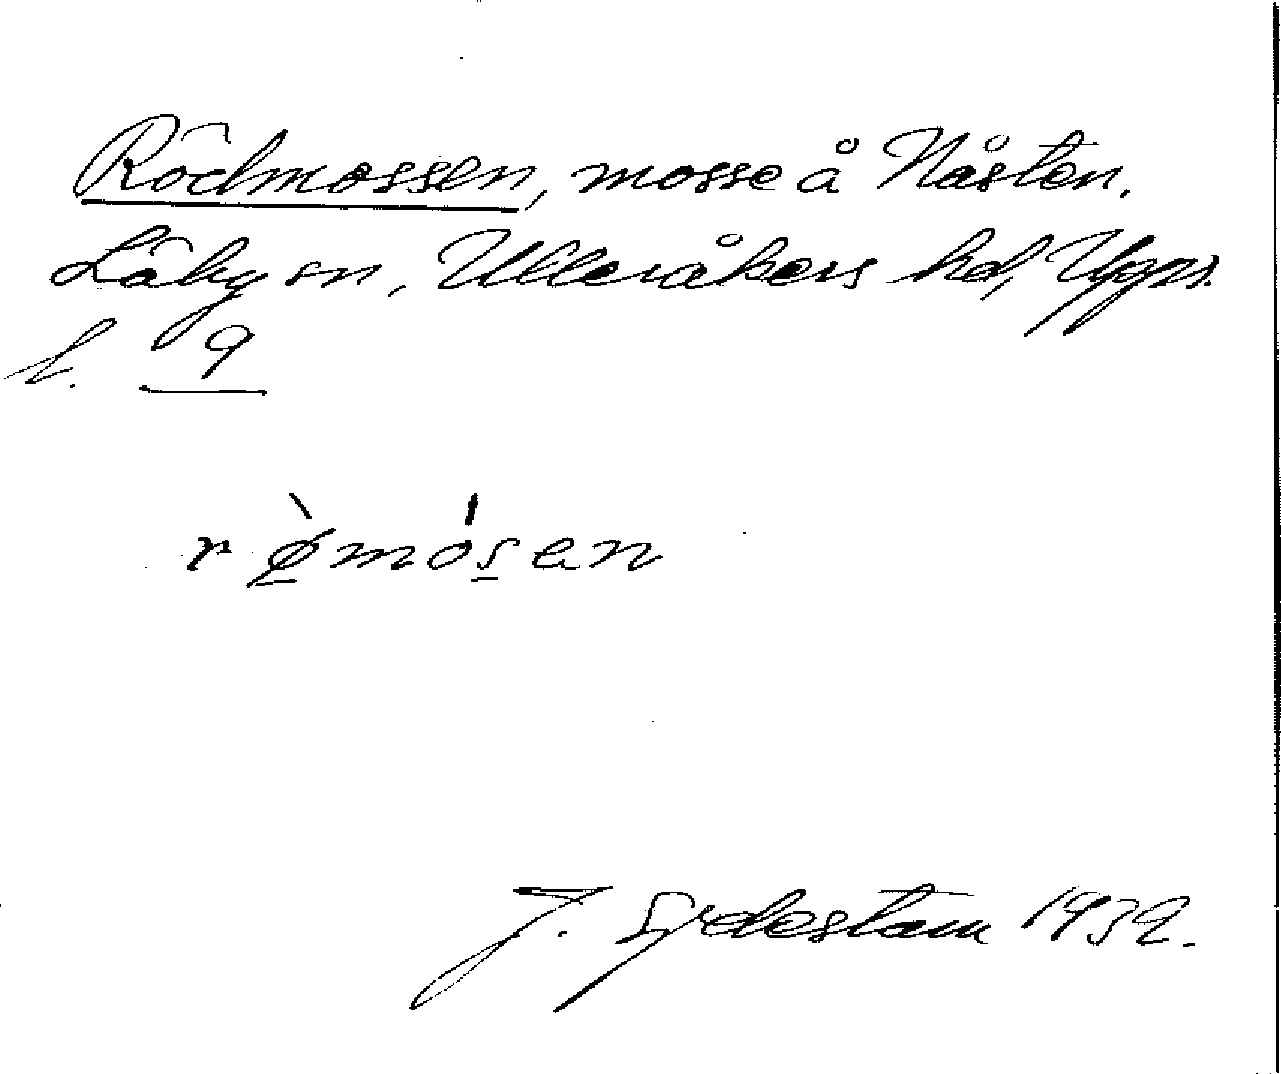 Rödmossen, mosse å Nåsten.
Läby sn, Ulleråkers hd, Upps.
l. 9
rø̀mósen
J. Sydestam 1932.